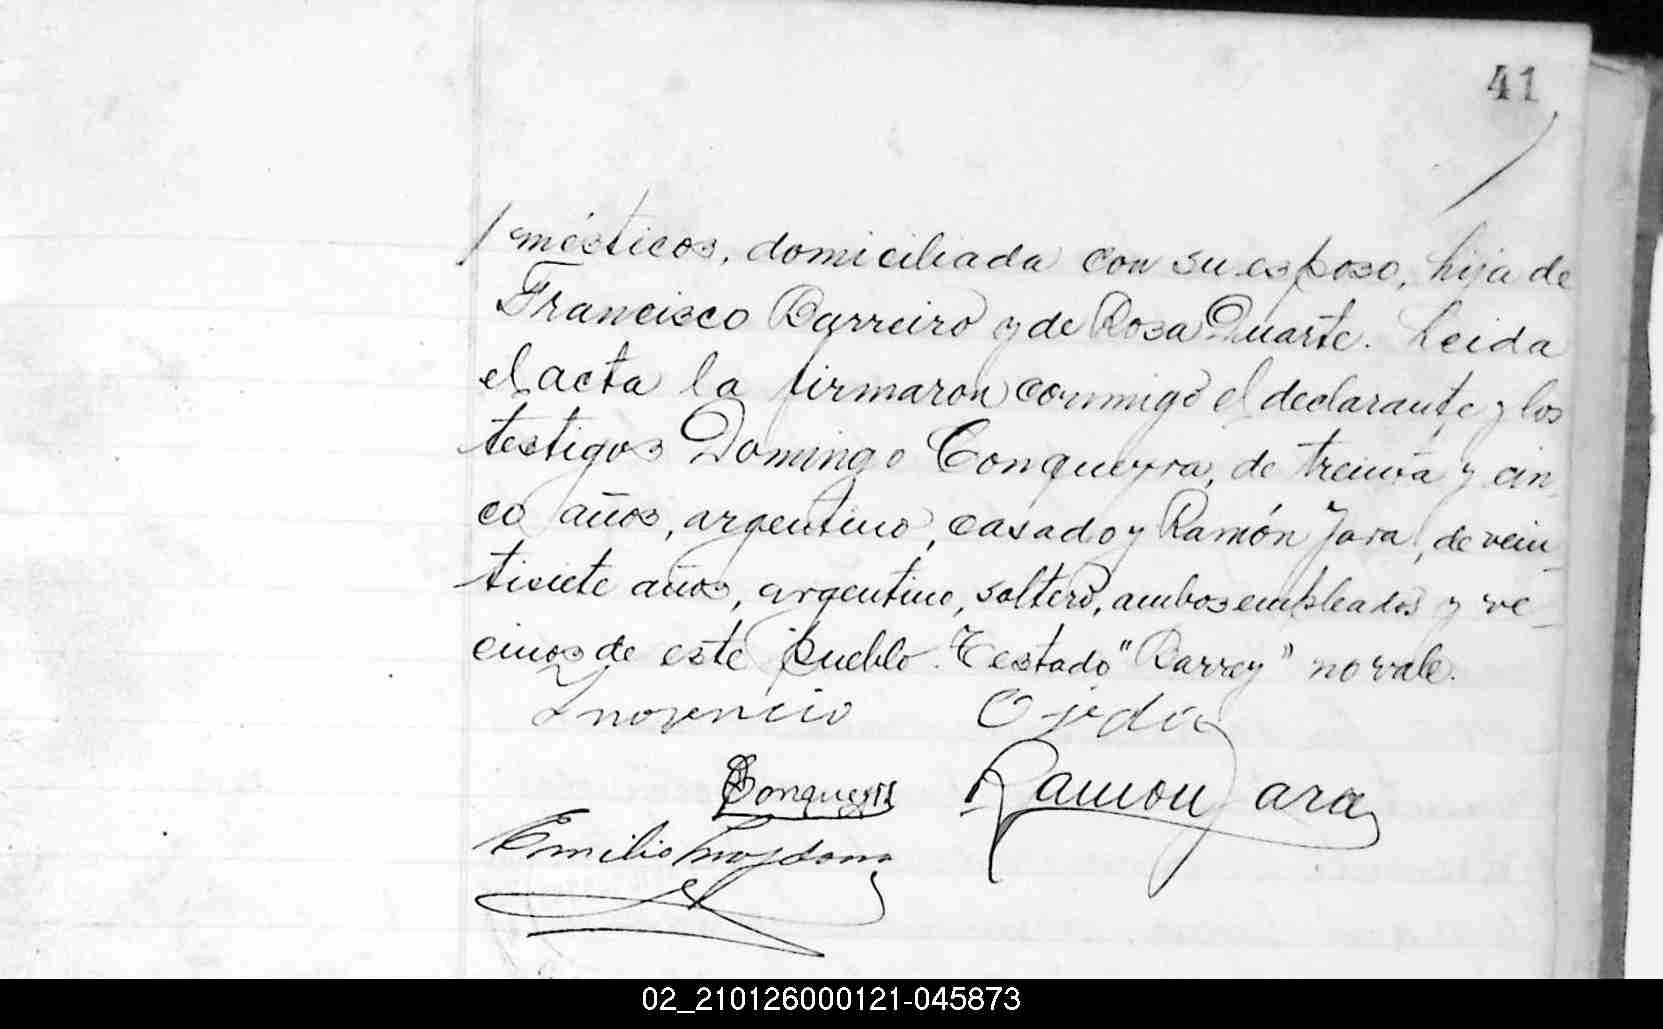 41
mésticos, domiciliada con su esposo, hija de
Francisco Barreiro y de Rosa Duarte. Leida
el acta la firmaron conmigo el declarante y los
testigos Domingo Conqueyra, de treinta y cin
co años, argentino, casado y Ramón Jara, de vein_
tisiete años, argentino, soltero, ambos empleados y ve_
cinos de este pueblo. Testado "Barrey" no vale.
Inosencio Ojeda
Ramon Jara
Emilio
02_210126000121-045873